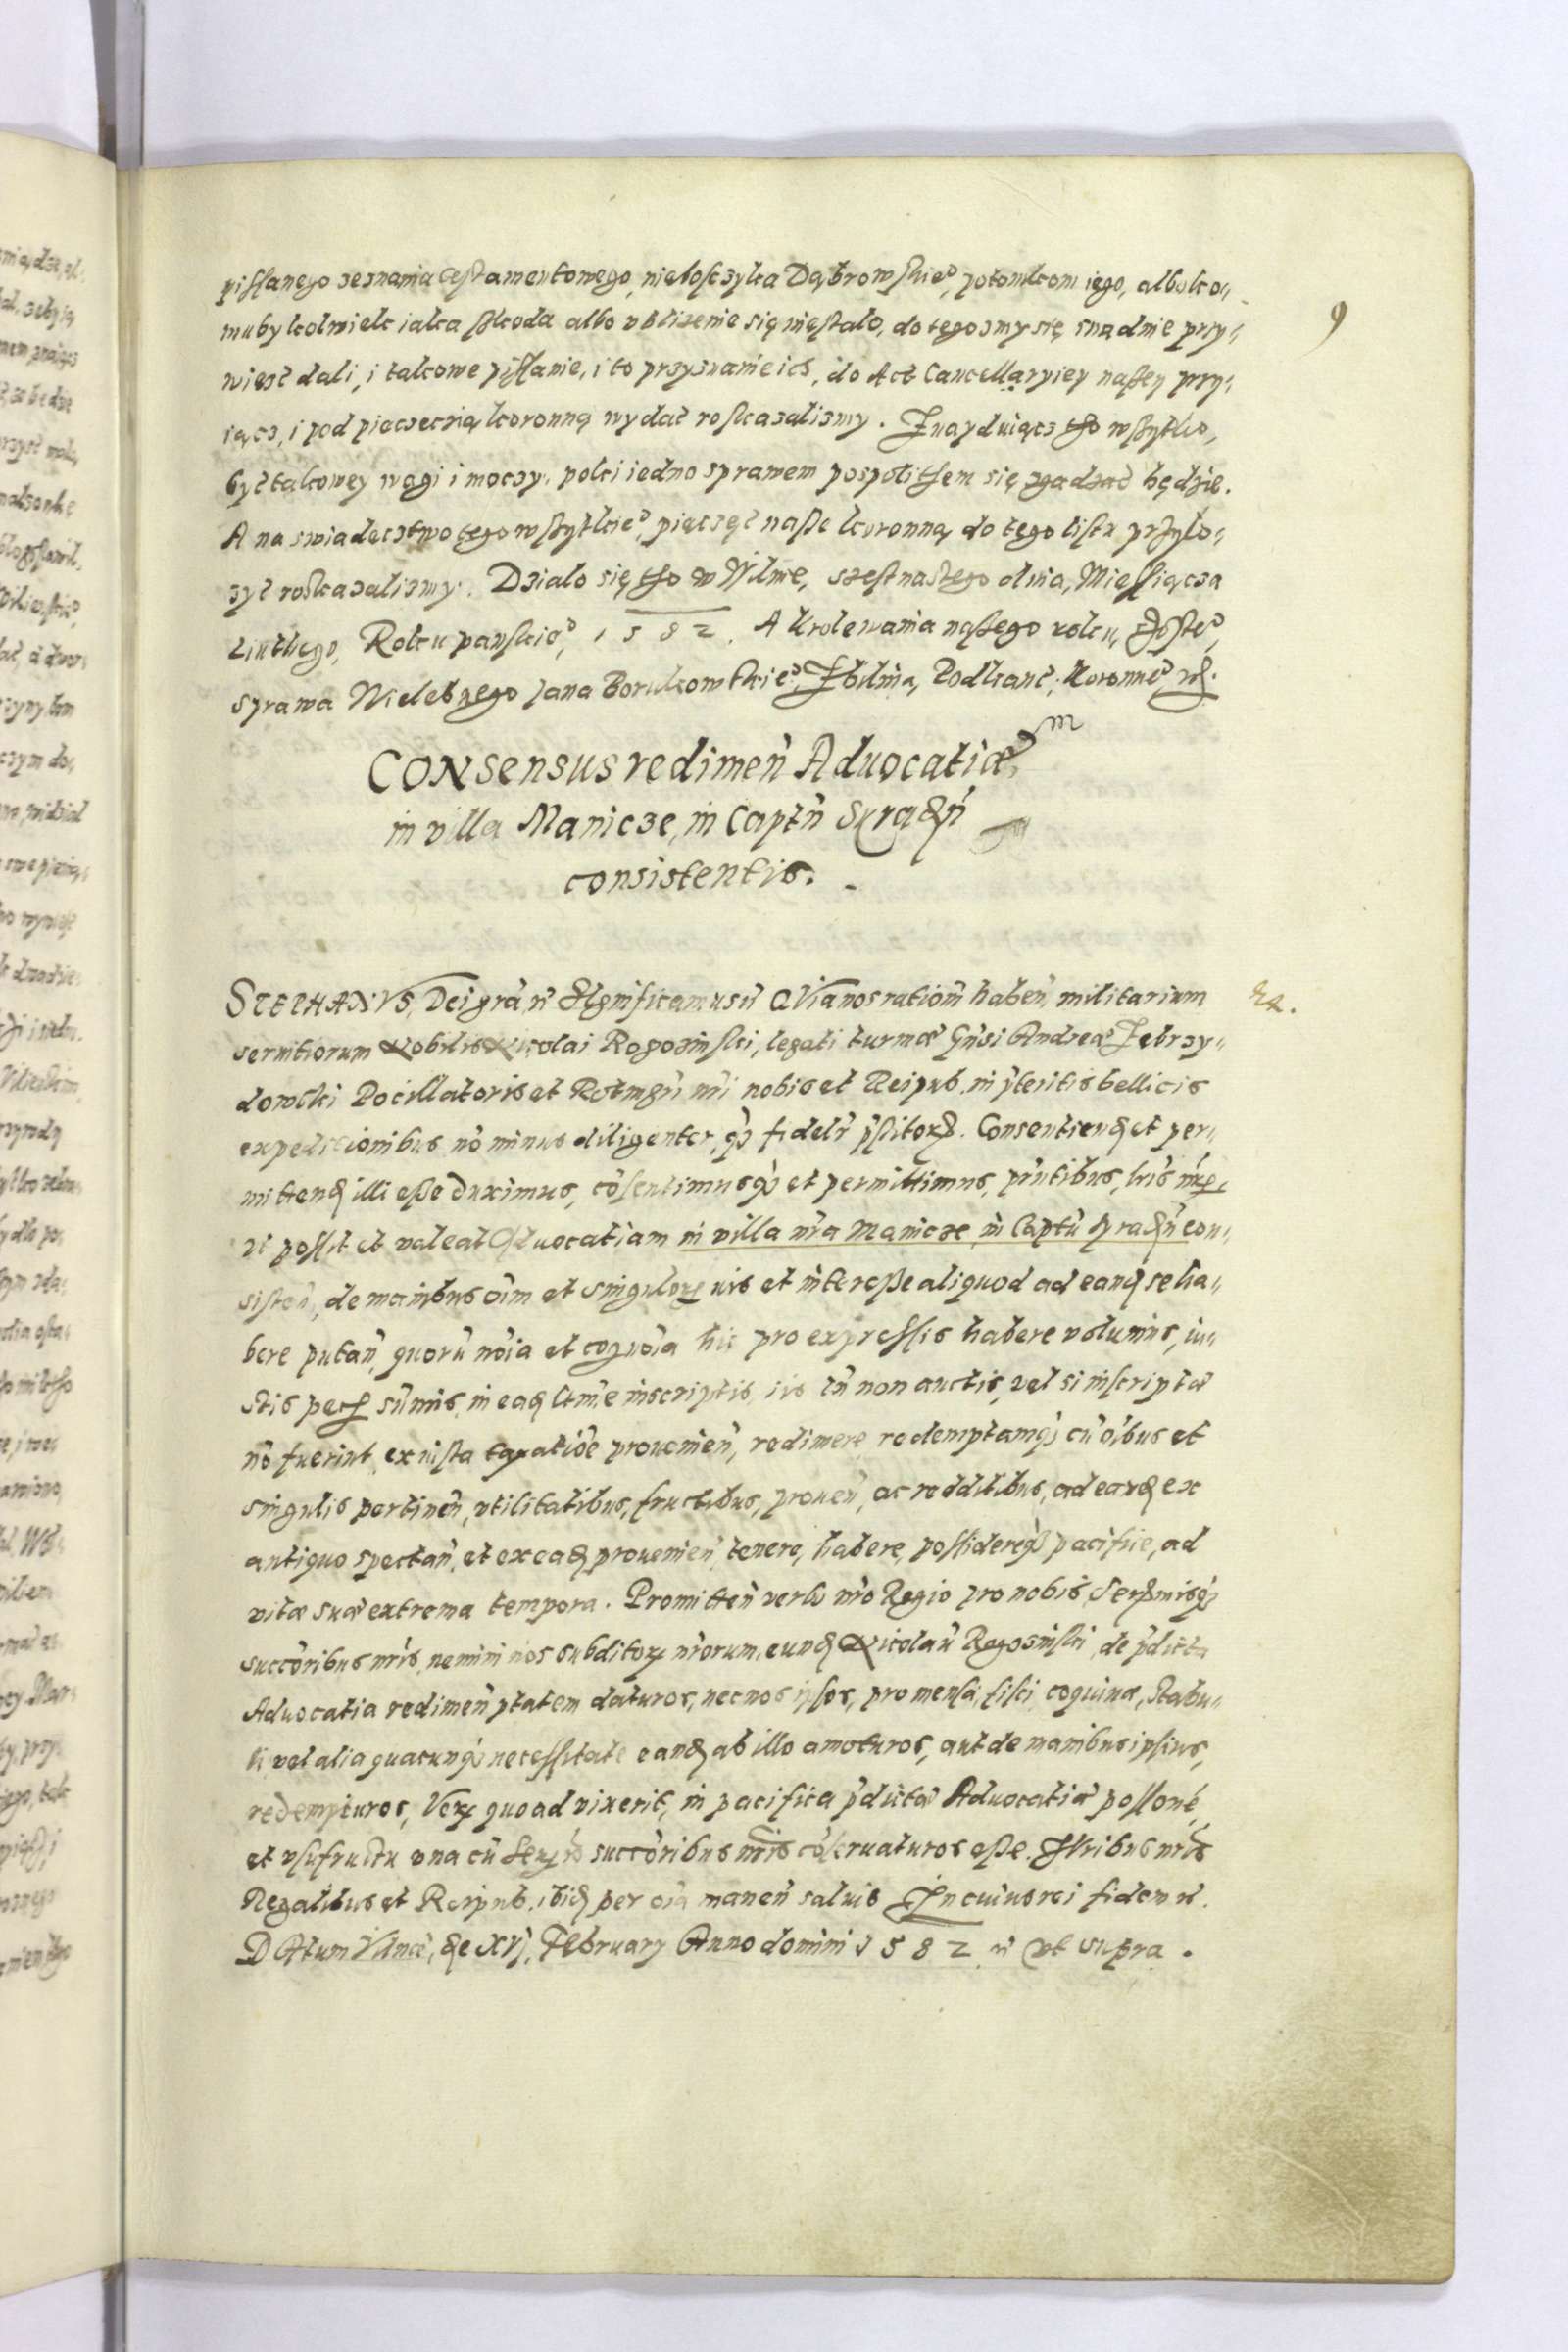 9
pissanego zeznania testamentowego, nieboszczyka Dąbrowskie°, potomkom iego, albo ko„
mubykolwiek iaka szkoda albo ubliżenie się niestało, do tegosmy się snadnie przy„
wiesć dali, i takowe pissanie, i to przyznanie ich, do Act Cancellaryiey naszey przy„
iącz, i pod pieczęcią koronną wydać roskazalismy. Znayduiącz tho wszytko,
być takowey wagi i moczy, poki iedno sprawem pospolithem się zgadzać będzie.
A na swiadecztwo tego wszytkie°, pięczęć nasze koronną do tego listu przyło„
zyć roskazalismy. Działo się tho w Wilnie, szesnastego dnia, Miesiącza
Luthego, Roku panskie°, 1582. A Krolewania naszego roku, szoste°,
sprawa Wielebnego Jana Borukowskie°, Podkanc, Koronne°,
CONsensus redimeñ Advocatiam
in villa Manicze, in Captñ Syradñ
consistentis.
STEPHANVS, Dei grã, Significamus Quia nos rationem habeñ militarium
servitiorum Nobilis Nicolai Rogozinski, legati turmæ Gñsi Andreæ Zebrzy„
dowski Pocillatoris et Rotmgri nri nobis et Reipub. in pteritis bellicis
expeditionibus nõ minus diligenter, fidelr pstitor. Consentiend et per„
mittend illi esse duximus, cõsentimusq et permittimus, pñtibus, lris nris
vt possit et valeat Advocatiam in villa nra Manicze in Captũ Syradñ con„
sisteñ, de manibus oim et singulor ius et interesse aliquod ad eand se ha„
bere putañ, quorũ noia et cognoia hic pro expressis habere volumus, iu„
stis pec sũmis, in ead inscriptis, iis tñ non auctis, vel si inscriptæ
nõ fuerint, ex iusta taxatiõe provenieñ, redimere redemptamq cũ oibus et
singulis pertineñ, vtilitatibus, fructibus, proueñ, ac redditibus, ad eand ex
antiquo spectañ, et ex ead provenieñ, tenere, habere, possidereq pacifice, ad
vitæ suæ extrema tempora. Promitteñ verbo nro Regio pro nobis, Sermisq
succoribus nris, nemini nos subditor nrorum, eund Nicolaũ Rogozinski, de pdicta
Advocatia redimeñ ptatem daturos, nec nos ipsos, pro mensa, fisci, coquinæ, stabu„
li vel alia quacunq necessitate eand ab illo amoturos, aut de manibus ipsius,
redempturos, Ver quoad vixerit, in pacifica pdictæ Advocatiæ possone,
et vsufructu vna cũ Ser succoribus nris cõseruaturos esse. Juribus nris
Regalibus et Reipub. ibid per oia maneñ saluis In cuius rei fidem
DAtum Vilnæ, die XVj, February Anno domini 1582 vt supra.